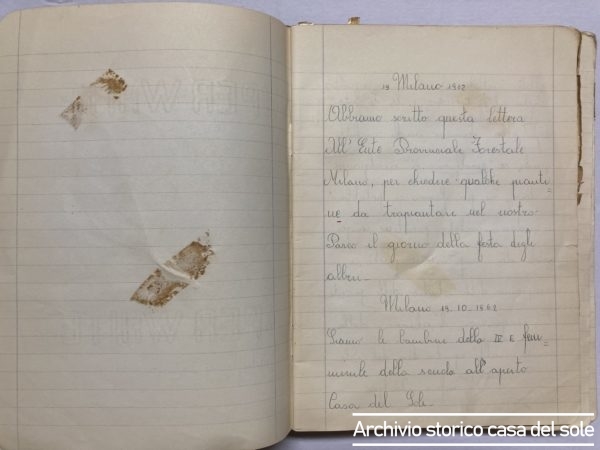 19 Milano 1962
Abbiamo scritto questa lettera
All' Ente Provinciale Forestale
Milano, per chiedere qualche pianti=
ne da trapiantare nel nostro
Parco il giorno della festa degli
alberi
Milano 19-10-1962
Siamo le bambine della IV E fem=
minile della scuola all'aperto
Casa del Sole
Archivio storico casa del sole